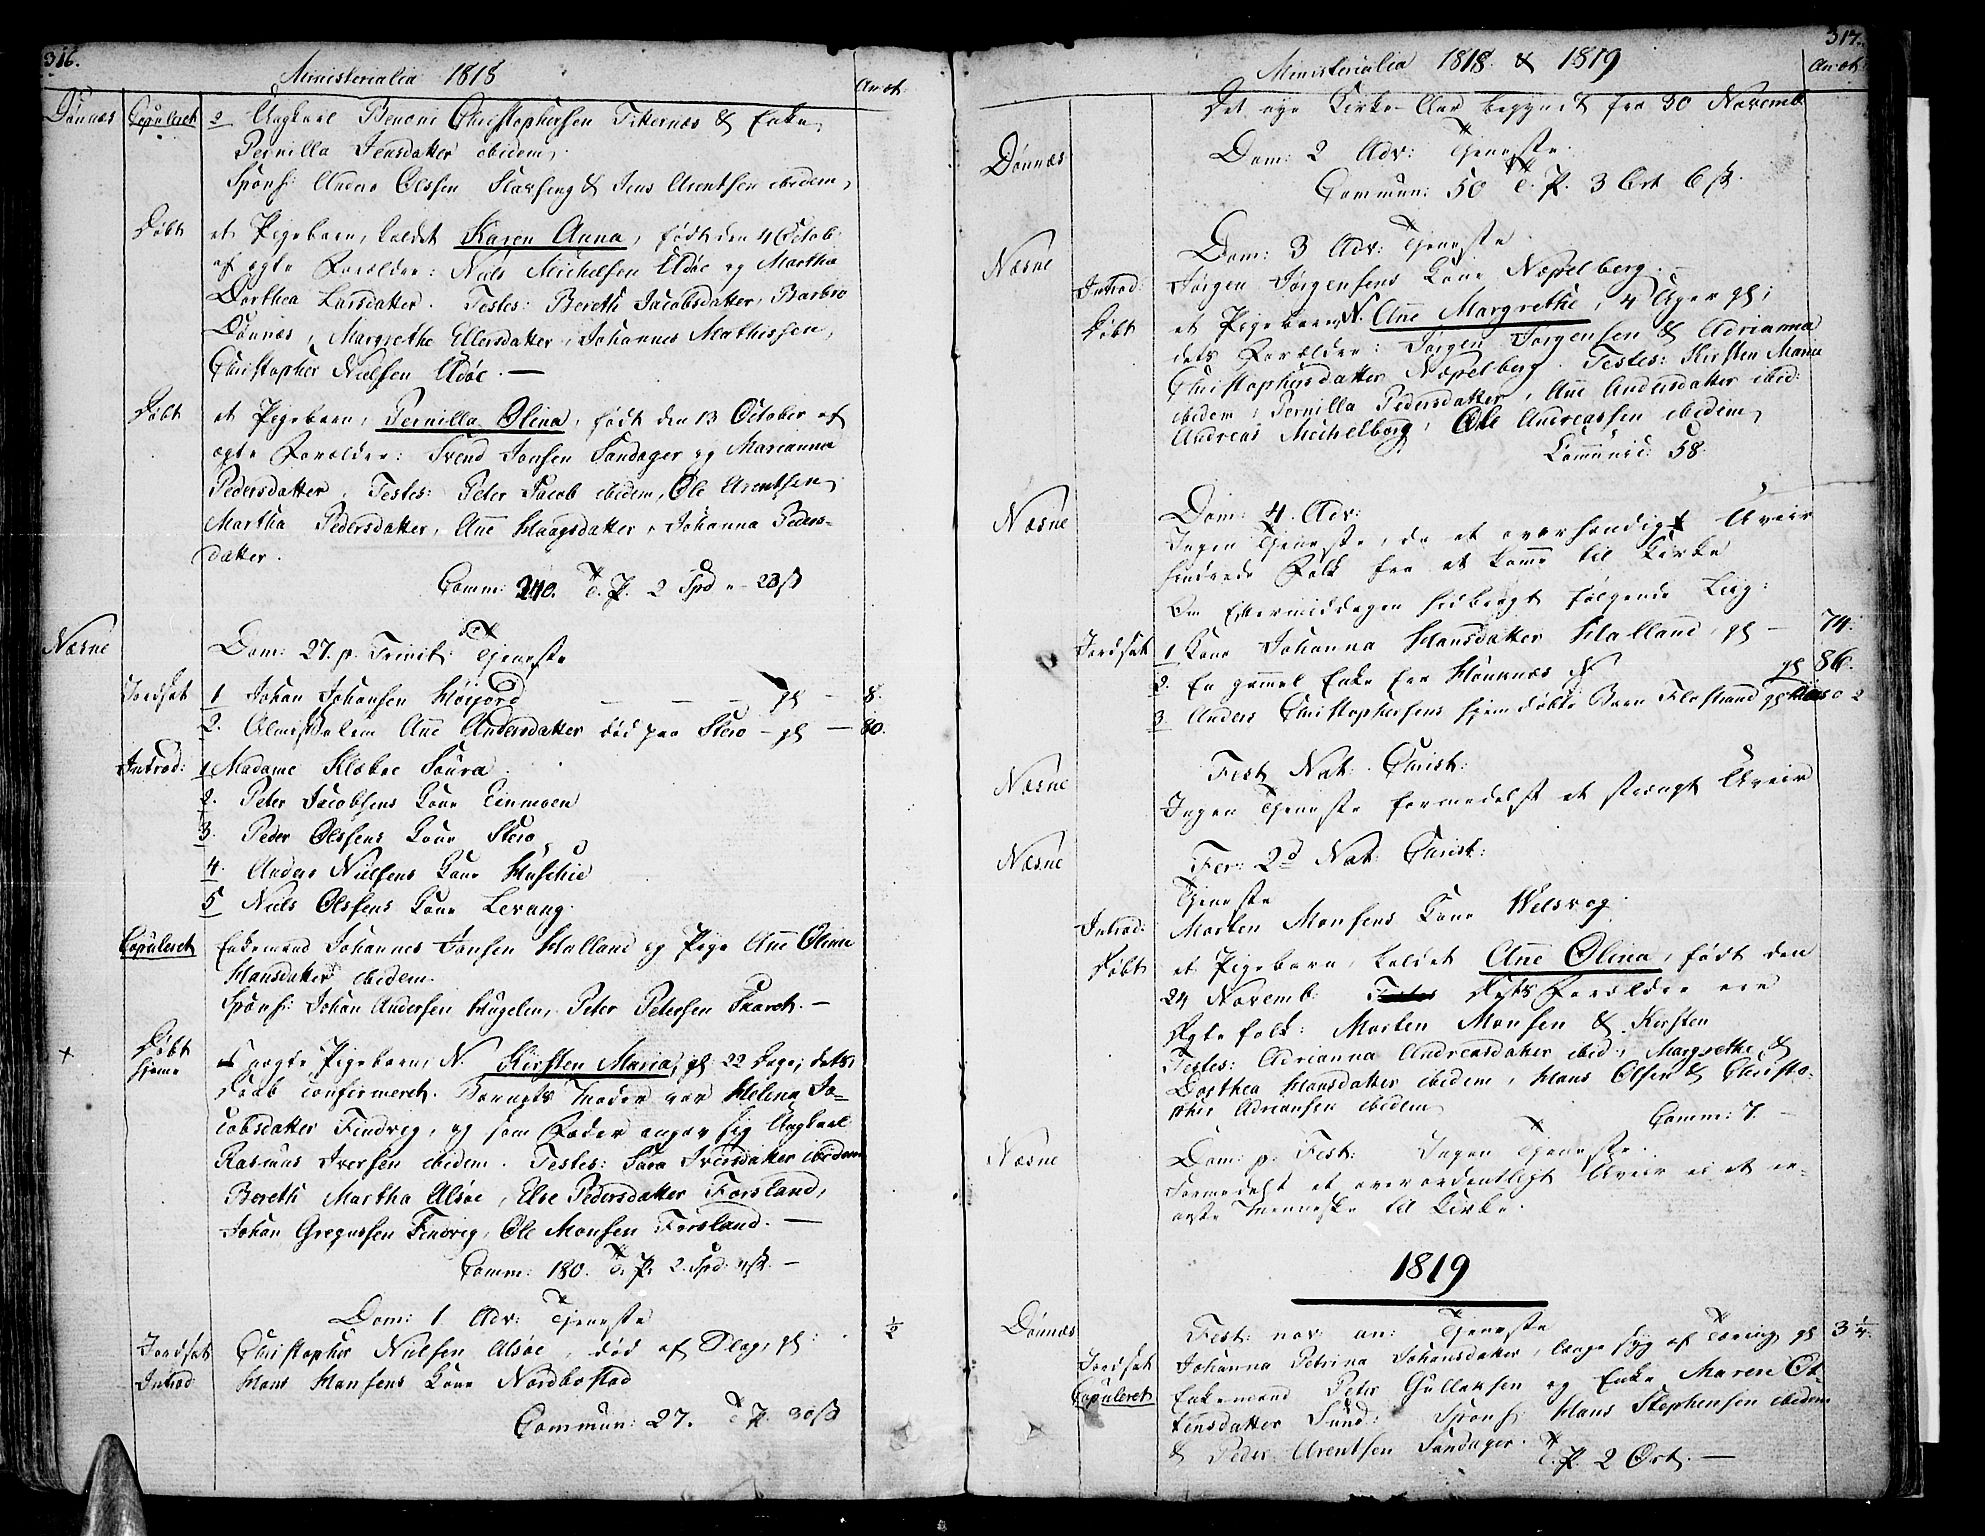 316.
Ministerialia 1818
Aaret
Dønnæs Copuleret 2 Ungkarl Benoni Christophersen Titternæs & Enke
Pernilla Jensdatter ibidem,
Spons: Anders Olssen Slavseng & Jens Arentsen ibidem,
Døbt et Pigebarn, kaldet Karen Anna, født den 4 Octob:
af ægte Forældre: Niels Michelsen Alsøe og Martha
Dorthea Larsdatter. Testes: Bereth Jacobsdatter, Barbro
Dønnæs, Margrethe Ellersdatter, Johannes Mathissen,
Christopher Nielsen Alsøe. —
Døbt et Pigebarn, Pernilla Olina, født den 13 October af
ægte Forældre: Svend Jonsen Sandager og Marianna
Pedersdatter. Testes: Peter Jacob ibidem, Ole Arentsen,
Martha Pedersdatter, Ane Haagsdatter, Johanna Peders-
datter.
Comm: 240. T. P. 2 Spd " 23 ß
Næsne Dom: 27. p. Trinit: Tjeneste
Jordsat 1 Johan Johansen Høijord — — — gl — 8.
2. Almisselem Ane Andersdatter død paa Stero — gl — 80.
Introd: 1 Madame Klæboe Saura.
2. Peter Jacobsens Kone Einmoen
3. Peder Olssens Kone Stero
4. Anders Nielsens Kone Huschie
5 Niels Olssens Kone Levang.
Copuleret Enkemand Johannes Jonsen Halland og Pige Ane Olina
Hansdatter ibidem.
Spons: Johan Andersen Hugelen, Peter Petersen Skaret. —
+ Døbt
hjeme et uægte Pigebarn, N. Kirsten Maria, gl: 22 Dage; dets
Daab confirmeret. Barnets Moder var Helena Ja-
cobsdatter Findvig, og som Fader angav sig Ungkarl
Rasmus Iversen ibidem. Testes: Sara Iversdatter ibidem
Bereth Martha Alsøe, Else Pedersdatter Forsland,
Johan Gregussen Findvig, Ole Monsen Forsland. —
Comm: 180. T. P. 2. Spd. " ß. —
Dom: 1 Adv: Tjeneste
Jordsat Christopher Nielsen Alsøe, død af Slag, gl: 1/2
Introd Hans Hansens Kone Nordbostad
Commun: 27. T P. 30 ß
317.
Ministerialia 1818. & 1819
Aaret
Det nye Kirke-Aar begyndt fra 30 Novemb
Dønnæs Dom: 2 Adv: Tjeneste.
Commun: 50 T. P. 3 Ort 6 ß.
Næsne Dom: 3 Adv: Tjeneste.
Introd: Jørgen Jørgensens Kone Næpelberg.
Døbt et Pigebarn N. Ane Margrethe, 4 Uger gl;
dets Forældre: Jørgen Jørgensen & Adrianna
Christophersdatter Næpelberg. Testes: Kirsten Maria
ibidem, Pernilla Pedersdatter, Ane Andersdatter ibid:
Andreas Michelborg, Ole Andreassen ibidem,
Communic: 58.
Næsne Dom: 4. Adv:
Ingen Tjeneste, da et overhændigt Uveir
hindrede Folk fra at kome til Kirke
Om Eftermiddagen hidbragt følgende Liig:
Jordsat 1 Kone Johanna Hansdatter Halland, gl — 74.
2. En gammel Enke fra Hounnæs N gl 86.
3. Anders Christophersens hjemdøbte Barn Flostrand gl 0 2
Næsne Fest, Nat: Christ:
Ingen Tjeneste formedelst et strængt Uveir
Næsne Fer: 2d Nat: Christ:
Tjeneste
Introd: Morten Monsens Kone Welsvog.
Døbt et Pigebarn, kaldet Ane Olina, født den
24 Novemb: dets Forældre ere
Ægtefolk: Morten Monsen & Kirsten
Testes: Adrianna Andreasdatter ibid, Margrethe &
Dorthea Hansdatter ibidem, Hans Olsen & Christo-
pher Adriansen ibidem
Comm: 7 —
Næsne Dom: p: Fest: Ingen Tjeneste.
Formedelst et overordentligt Uveir ei et en-
este Menneske til Kirke.
1819
Dønnæs Fest: nov: an: Tjeneste
Jordsat Johanna Petrina Johansdatter, længe syg af Tæring, gl 3 1/4.
Copuleret Enkemand Peter Gullaksen og Enke Maren Ot-
tensdatter Sund: Spons: Hans Stephensen ibidem
& Peder Arentsen Sandager. T. P. 2 Ort. —